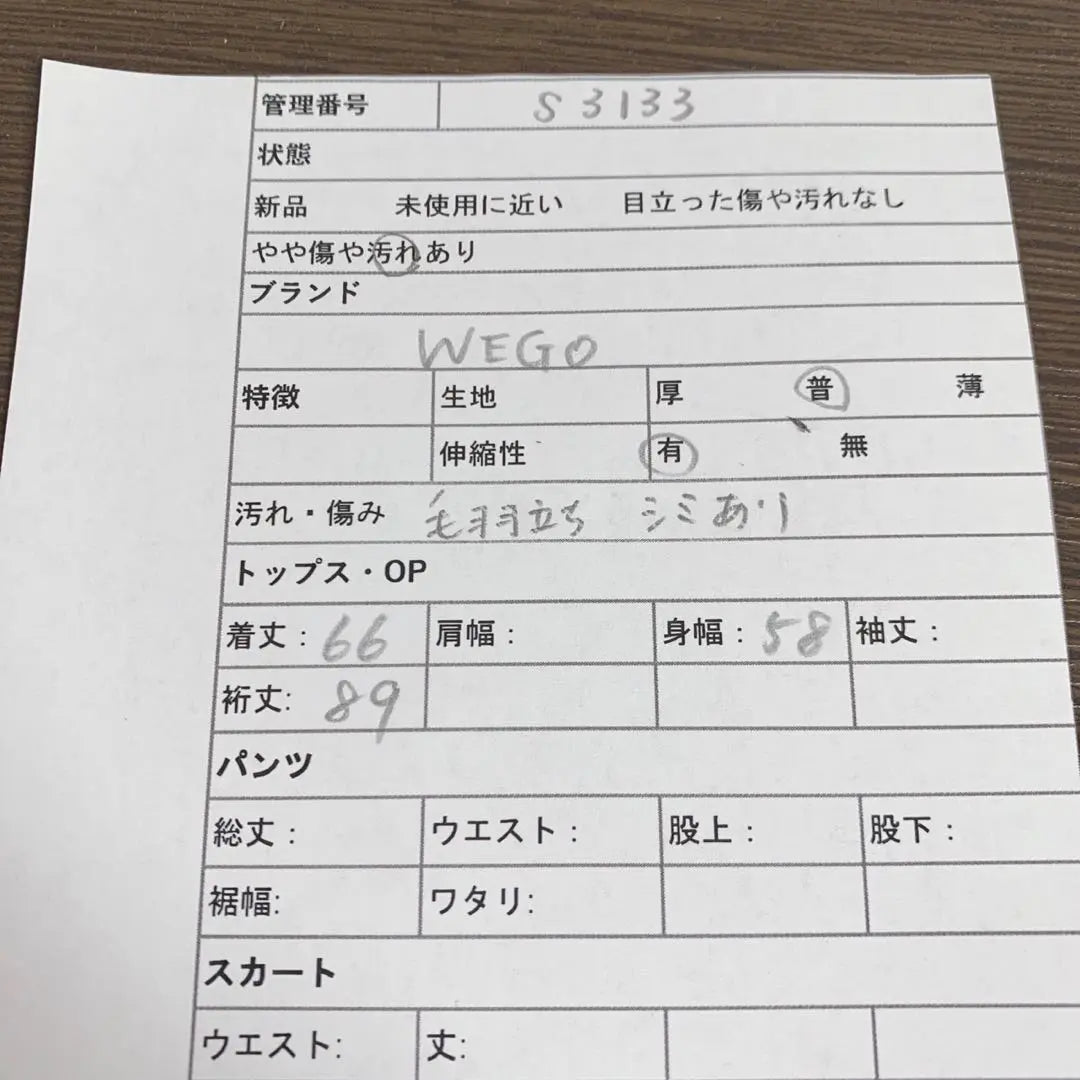 管理番号 S3133
状態
新品 未使用に近い 目立った傷や汚れなし
やや傷や汚れあり
ブランド
WEGO
特徴 生地 厚 普 薄
伸縮性 有 無
汚れ・傷み 毛羽立ち シミあり
トップス・OP
着丈：66 肩幅： 身幅：58 袖丈：
裄丈: 89
パンツ
総丈： ウエスト： 股上： 股下：
裾幅: ワタリ:
スカート
ウエスト: 丈: